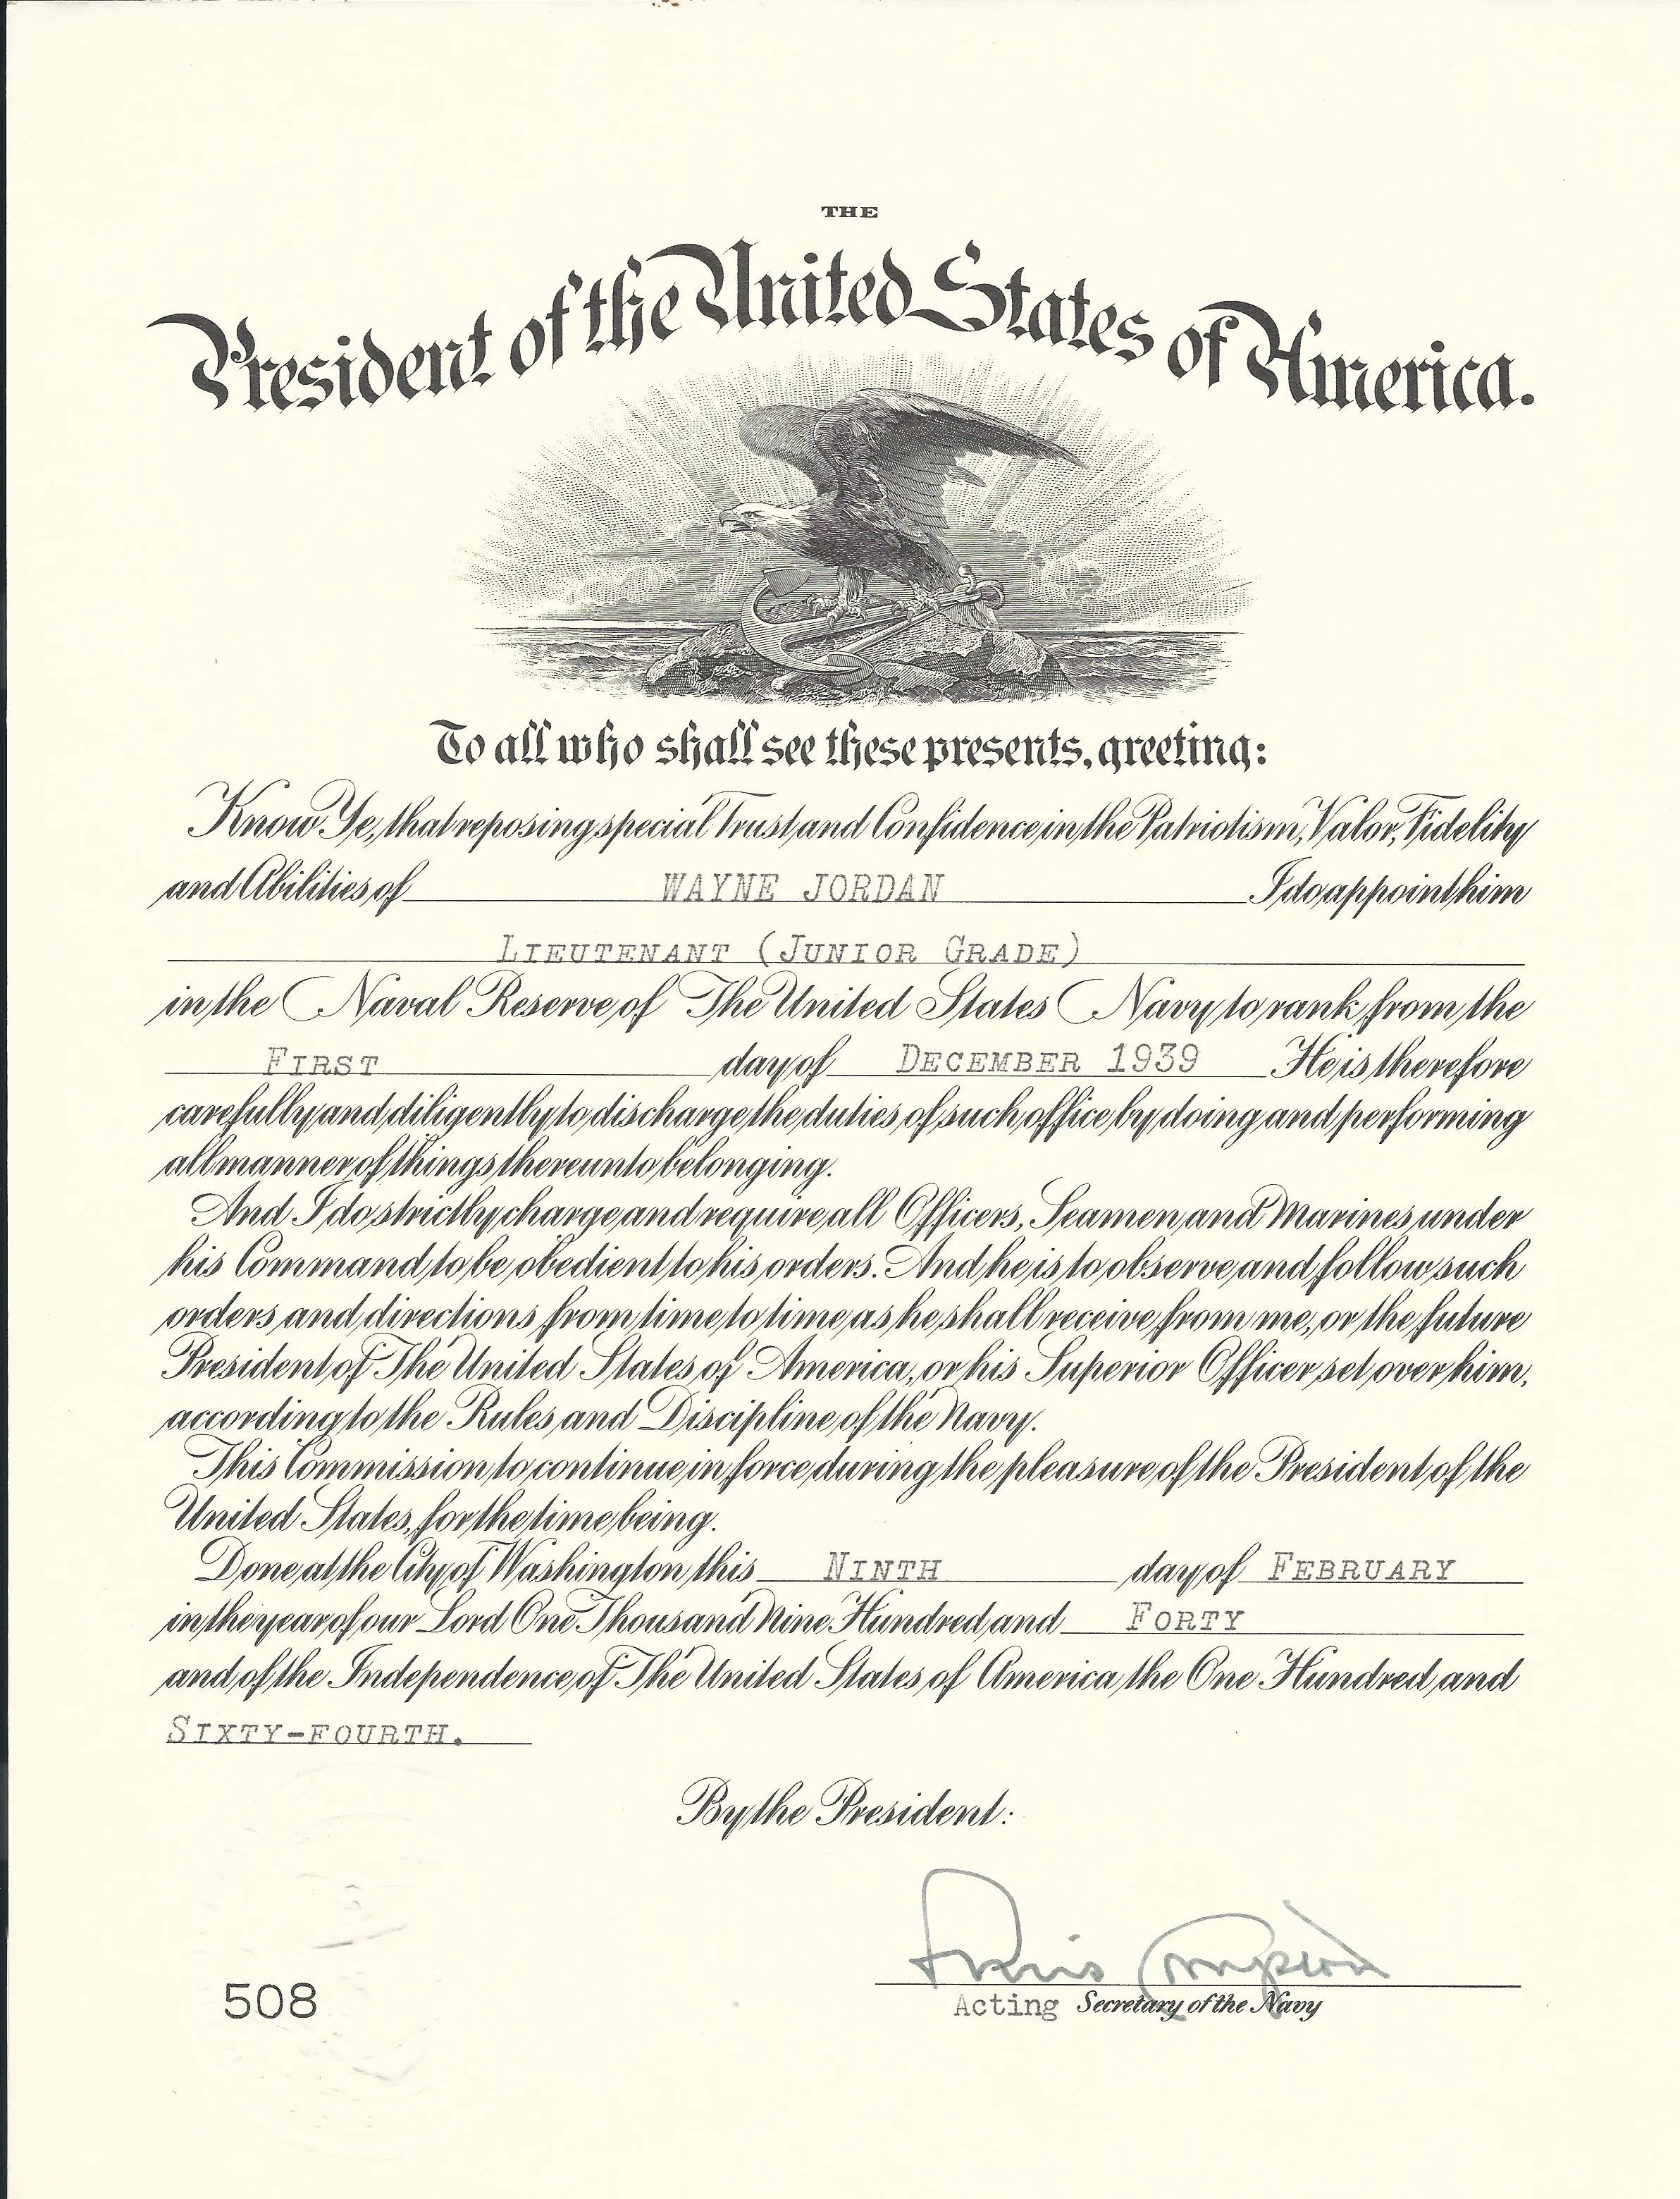 THE
President of the United States of America.
To all who shall see these presents, greeting:
Know Ye, that reposing special Trust and Confidence in the Patriotism, Valor, Fidelity
and Abilities of WAYNE JORDAN I do appoint him
LIEUTENANT (JUNIOR GRADE)
in the Naval Reserve of The United States Navy to rank from the
FIRST day of DECEMBER 1939 He is therefore
carefully and diligently to discharge the duties of such office by doing and performing
all manner of things thereunto belonging.
And I do strictly charge and require all Officers, Seamen and Marines under
his Command to be obedient to his orders. And he is to observe and follow such
orders and directions from time to time as he shall receive from me, or the future
President of The United States of America, or his Superior Officer set over him,
according to the Rules and Discipline of the Navy.
This Commission to continue in force during the pleasure of the President of the
United States, for the time being.
Done at the City of Washington this NINTH day of FEBRUARY
in the year of our Lord One Thousand Nine Hundred and FORTY
and of the Independence of The United States of America the One Hundred and
SIXTY-FOURTH.
By the President:
Compton
Acting Secretary of the Navy
508